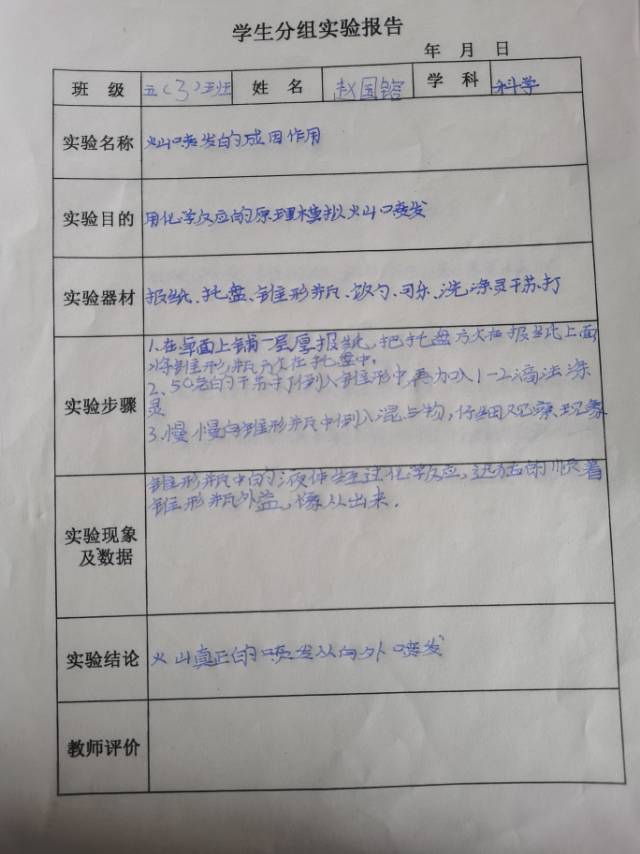 学生分组实验报告
年 月 日
班 级 五(3)班 姓 名 赵国 学 科 科学
实验名称 火山喷发的成因作用
实验目的 用化学反应的原理模拟火山喷发
实验器材 报纸、托盘、锥形瓶、饭勺、可乐、洗涤灵干苏打
实验步骤
1.在桌面上铺一层厚报纸,把托盘放在报纸上面
将锥形瓶放在托盘中。
2、50克的干苏打倒入锥形中,再加入1-2滴洗涤
灵
3.慢慢向锥形瓶中倒入混合物,仔细观察现象
实验现象
及数据
锥形瓶中的液体经过化学反应,迅猛的顺着
锥形瓶外益,出来.
实验结论 火山真正的喷发从向外喷发
教师评价